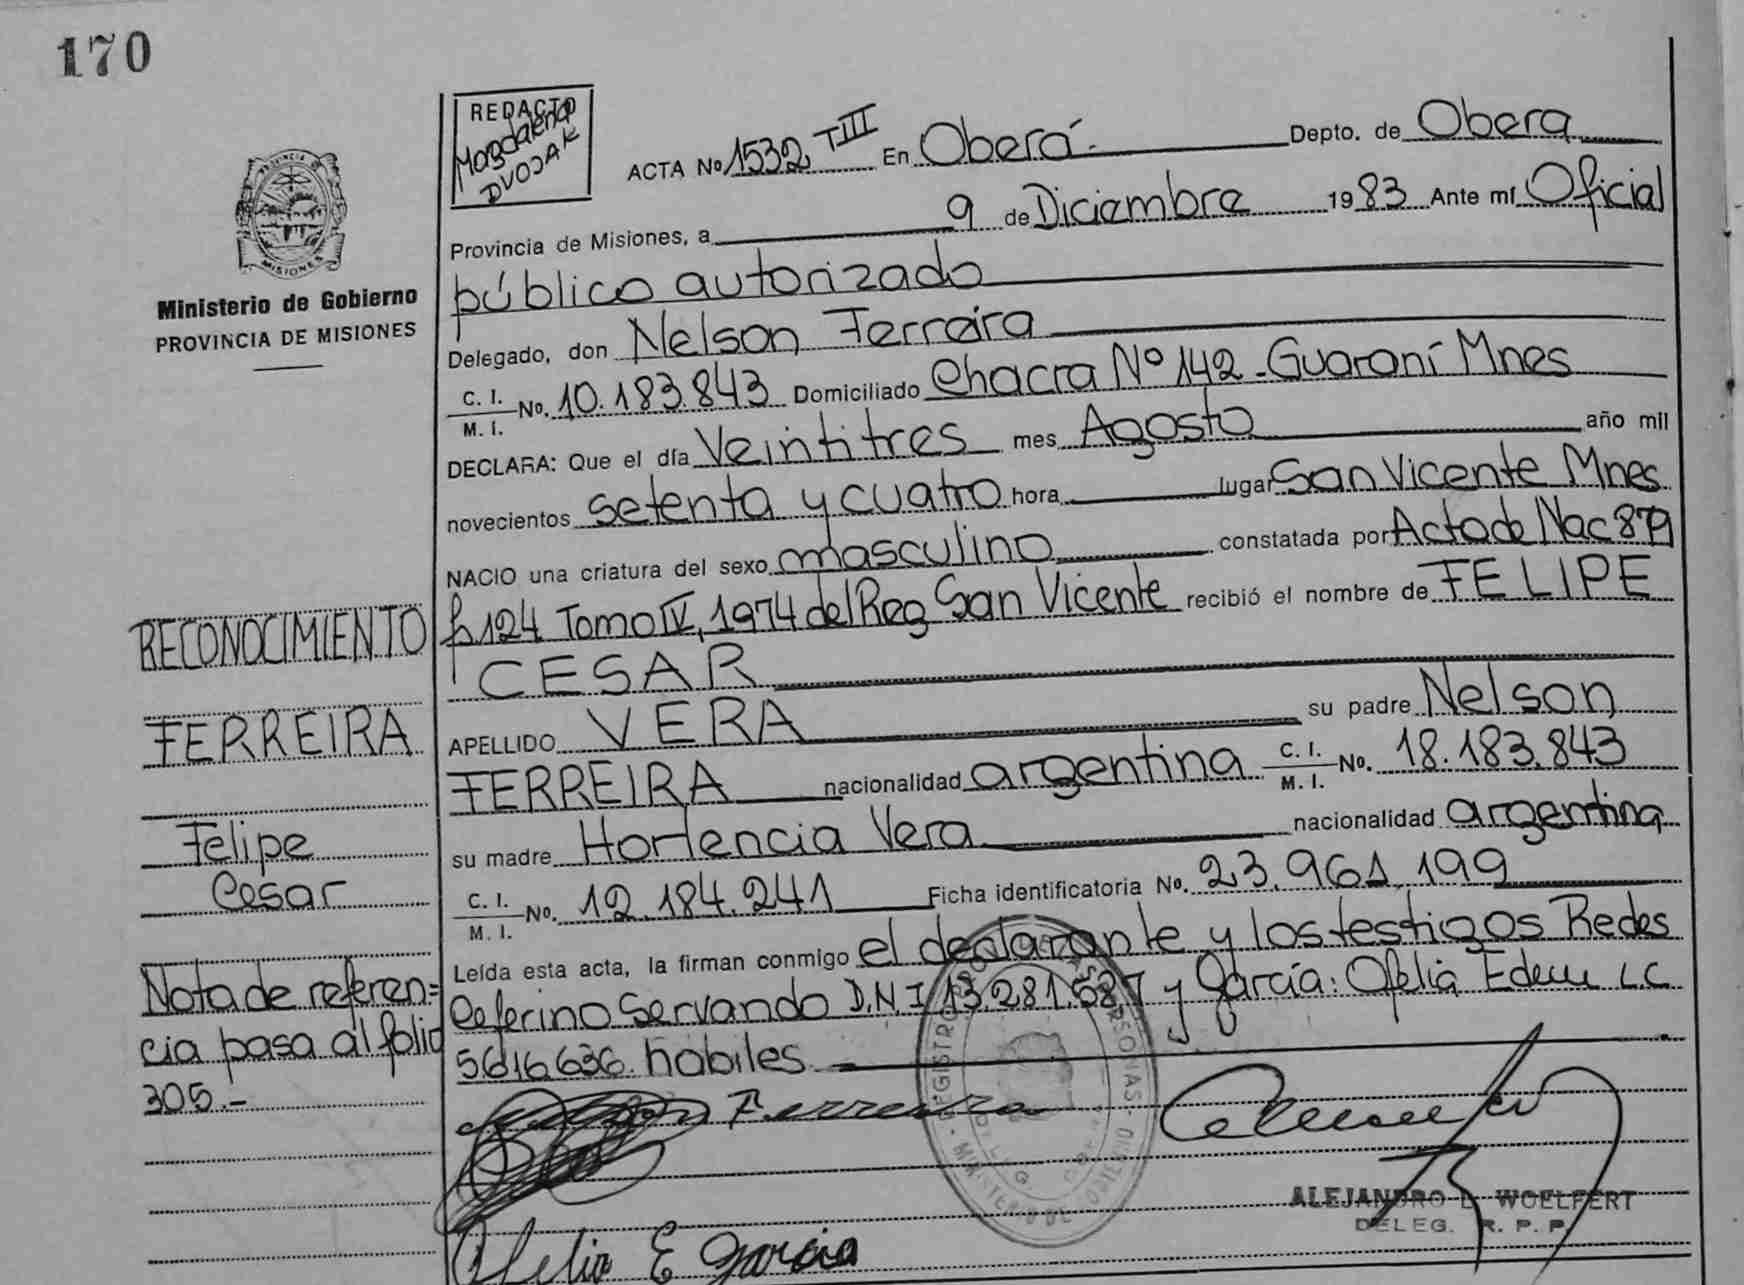 170
REDACTO
Magdalena
DVOJAK
ACTA No 1532 TIII En Oberá.- Depto. de Obera
Provincia de Misiones, a 9 de Diciembre 1983 Ante mí Oficial
público autorizado
MISIONES
Ministerio de Gobierno
PROVINCIA DE MISIONES
Delegado, don Nelson Ferreira
C. I. M. I. No. 10.183.843 Domiciliado Chacra Nº 142 - Guaraní Mnes
DECLARA: Que el día Veintitres mes Agosto año mil
novecientos setenta y cuatro hora lugar San Vicente Mnes
NACIO una criatura del sexo masculino constatada por Acta de Nac 879
RECONOCIMIENTO
fº 124 Tomo IV, 1974 del Reg San Vicente recibió el nombre de FELIPE
CESAR
FERREIRA
APELLIDO VERA su padre Nelson
FERREIRA nacionalidad argentina C. I. M. I. No. 18.183.843
Felipe
Cesar
su madre Hortencia Vera nacionalidad argentina
C. I. M. I. No. 12.184.241 Ficha identificatoria No. 23.961.199
Nota de referen=
cia pasa al folio
305.-
Leída esta acta, la firman conmigo el declarante y los testigos Redes
Ceferino Servando D.N.I 13.281.587 y García: Ofelia Edem L.C
5616636. habiles
Ferreira
ALEJANDRO L. WOELFERT
DELEG. R. P. P.
Ofelia E Garcia